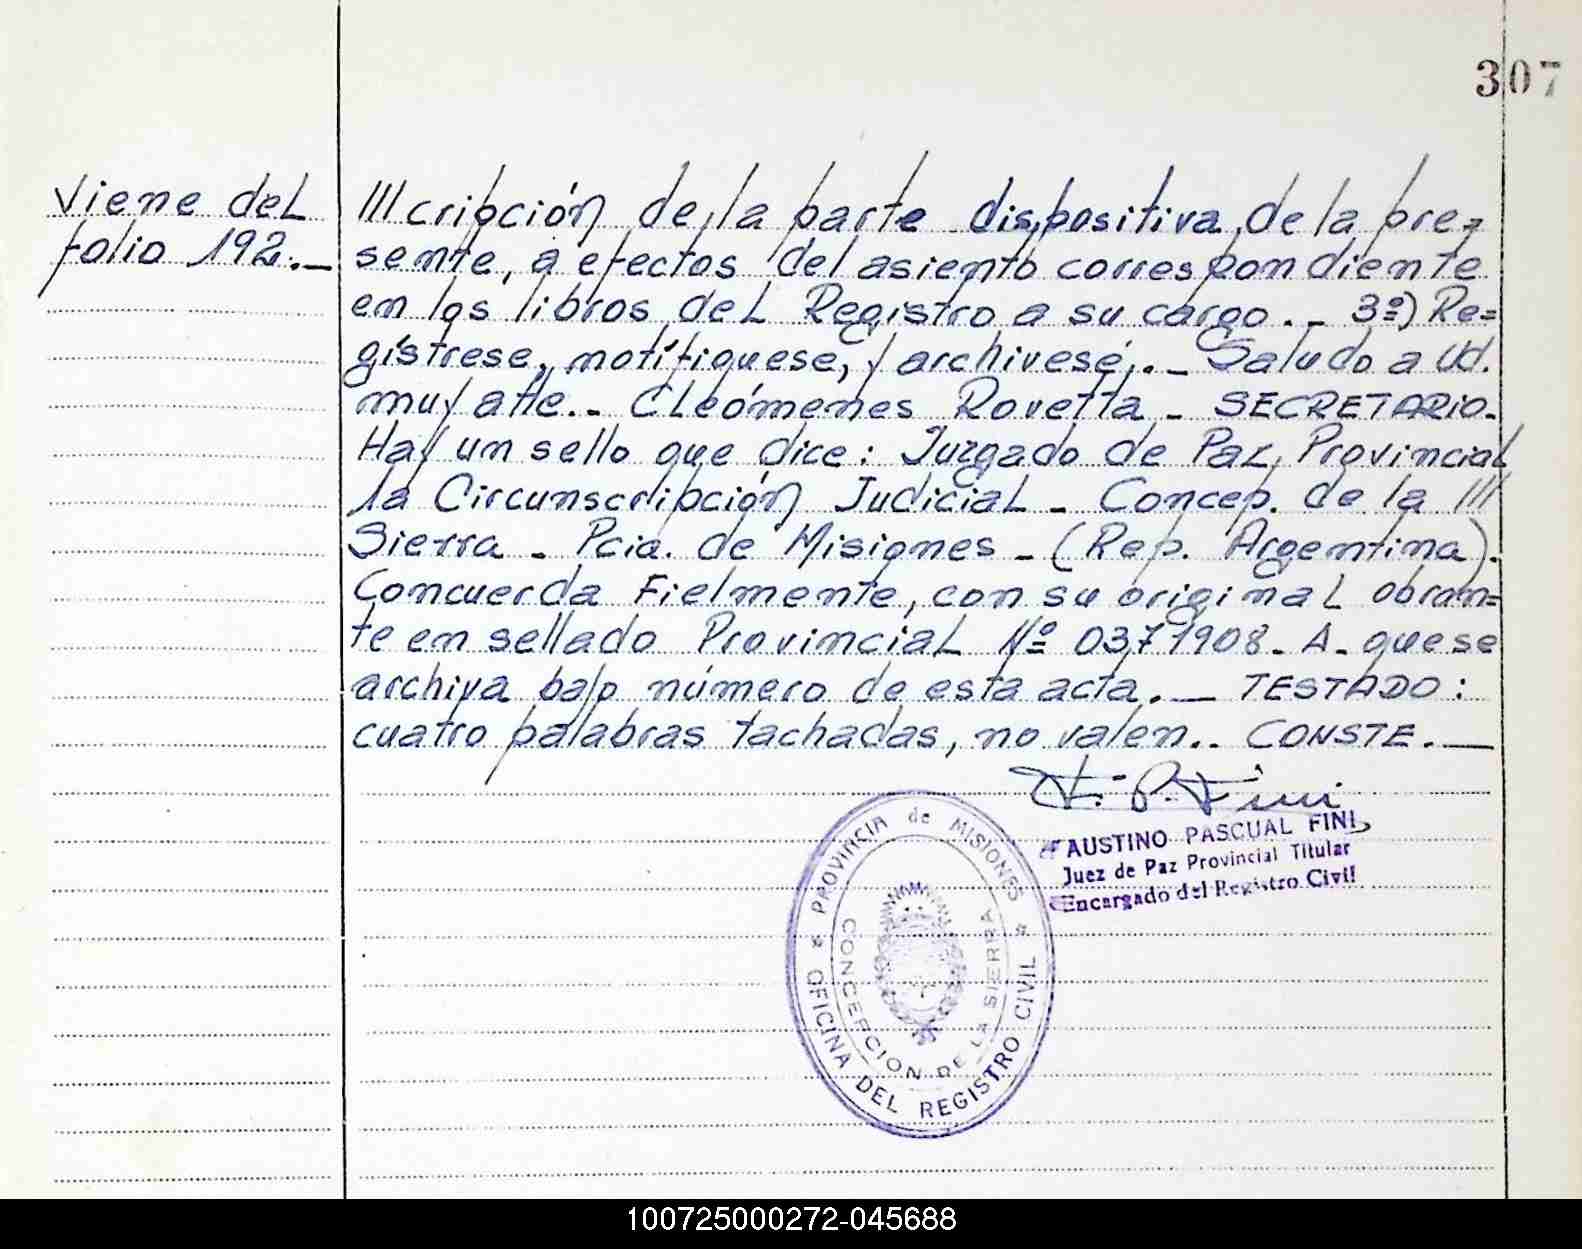 307
Viene del
folio 192.._
///cripción de la parte dispositiva de la pre=
sente, a efectos del asiento correspondiente
en los libros del Registro a su cargo._ 3º) Re=
gístrese, notifíquese, y archívese,._ Saludo a Ud.
muy atte._ Cleómenes Rovetta - SECRETARIO.
Hay un sello que dice: Juzgado de Paz Provincial
1a Circunscripción Judicial - Concep. de la ///
Sierra - Pcia. de Misiones - (Rep. Argentina).
Concuerda Fielmente, con su original obran=
te en sellado Provincial Nº 0371908. A. que se
archiva bajo número de esta acta.__ TESTADO:
cuatro palabras tachadas, no valen.. CONSTE.__
F. P. Fini
FAUSTINO PASCUAL FINI
Juez de Paz Provincial Titular
Encargado del Registro Civil
PROVINCIA de MISIONES
OFICINA DEL REGISTRO CIVIL
CONCEPCION DE LA SIERRA
100725000272-045688